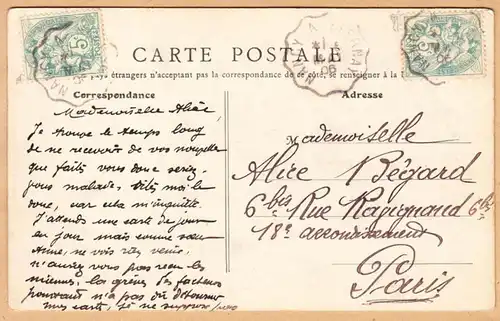 CARTE POSTALE
Tous les pays étrangers n'acceptant pas la correspondance de ce côté, se renseigner à la
Correspondance
Adresse
Mademoiselle Alice,
Je trouve le temps long
de ne recevoir de vos nouvelles
que faites vous donc seriez
vous malades dites moi le
donc, car cela m'inquiète.
J'attends une carte de jour
en jour mais comme sœur
Anne, ne vois rien venir,
n'auriez vous pas recu les
miennes, la grève des facteurs
pourtant n'a pas dû détourner
mes cartes, je ne suppose pas
Mademoiselle
Alice Bégard
6bis Rue Ravignand 6bis
18e arrondissement
Paris